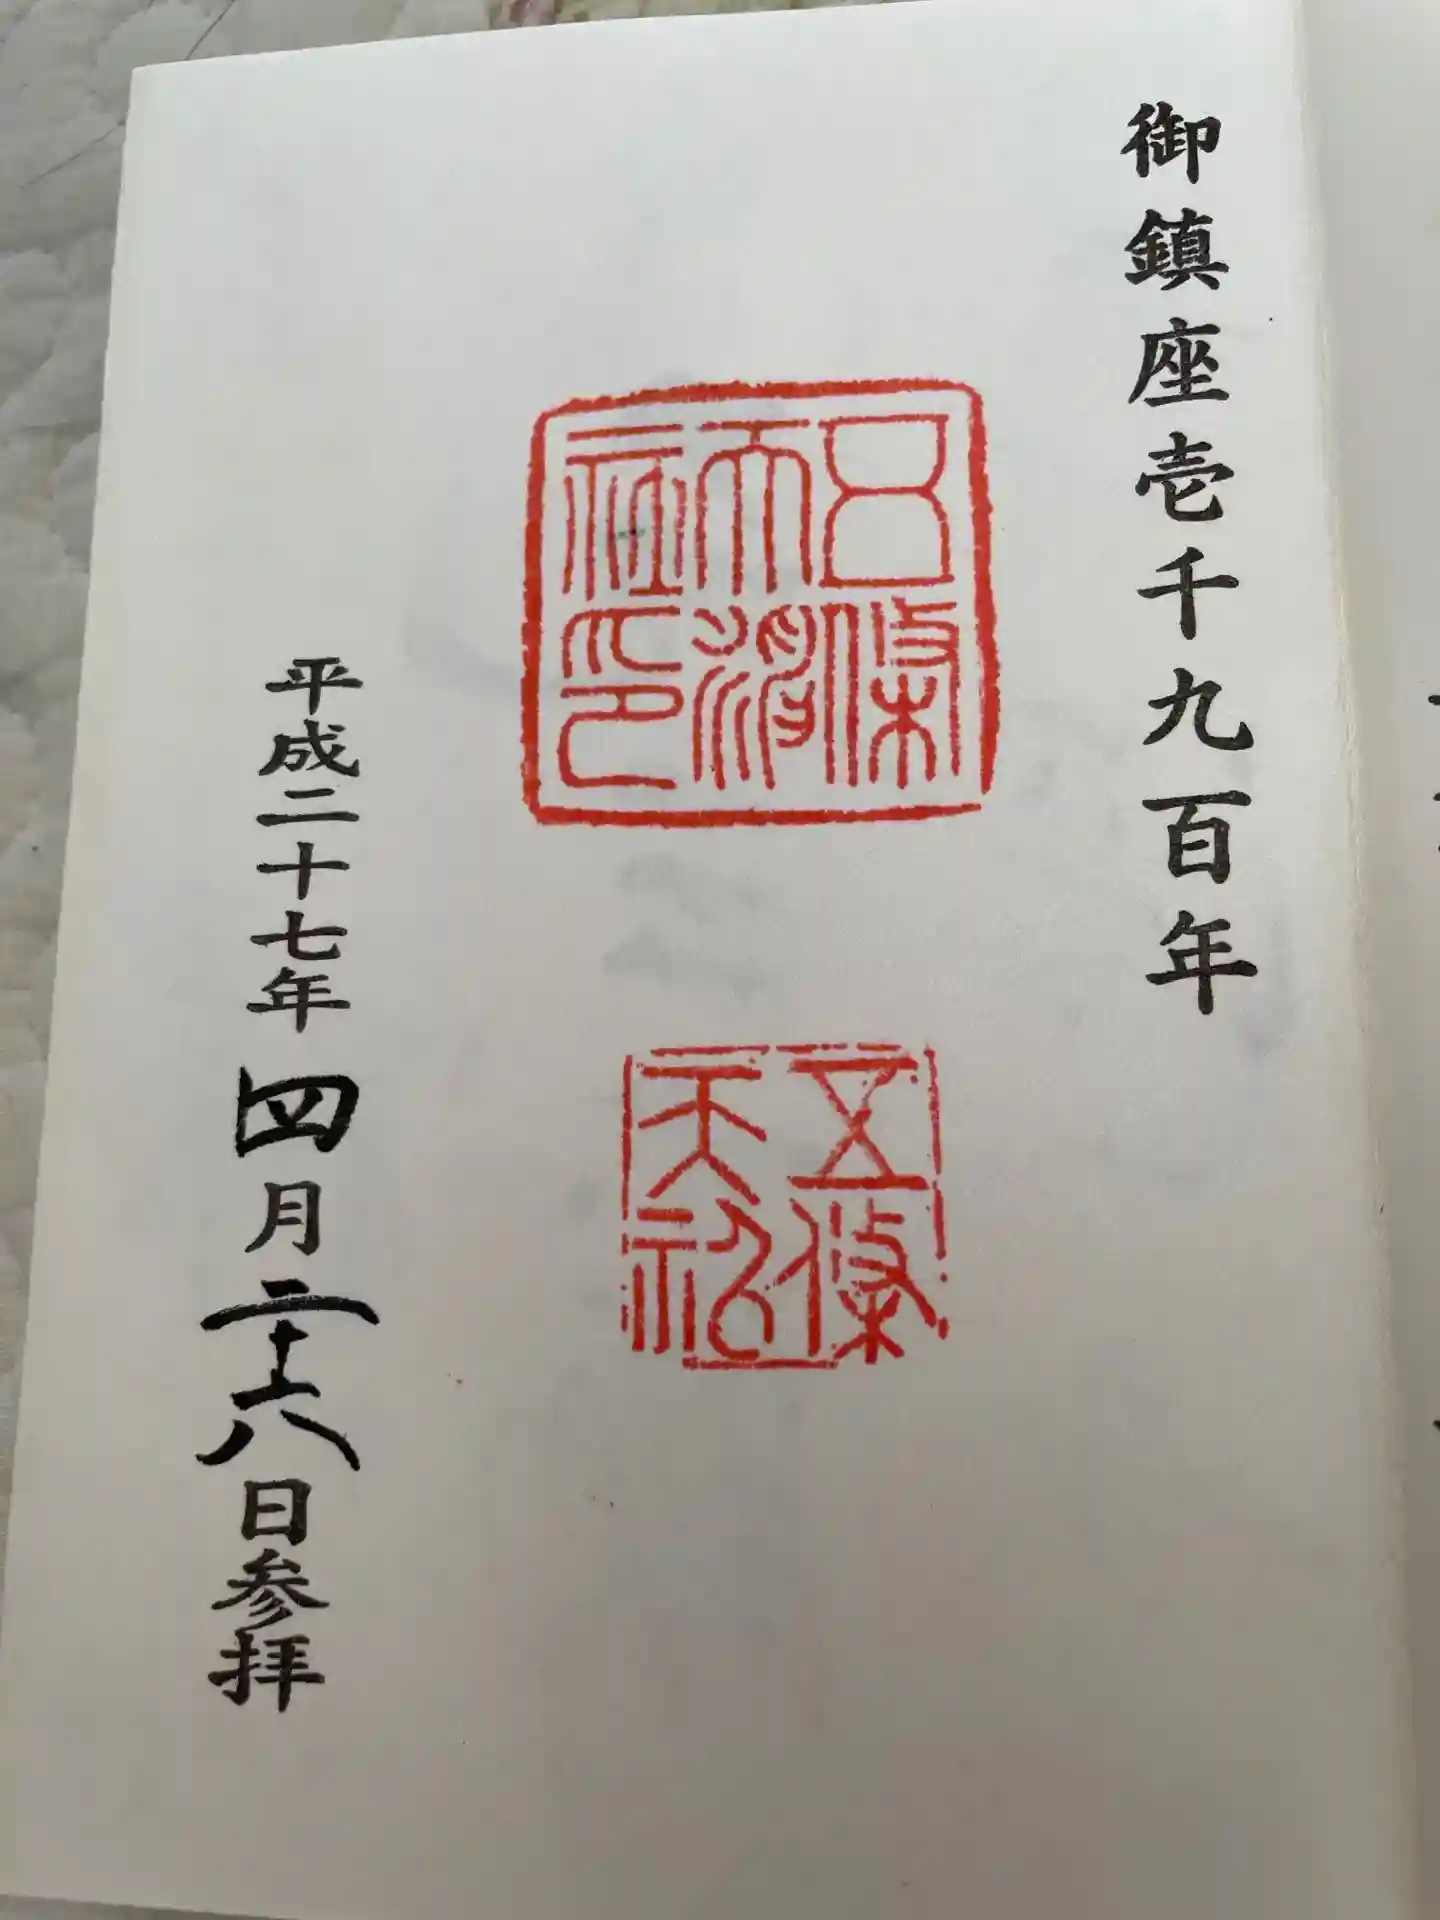 御鎮座壱千九百年
五條天神社印
五條天神
平成二十七年四月二十六日参拝